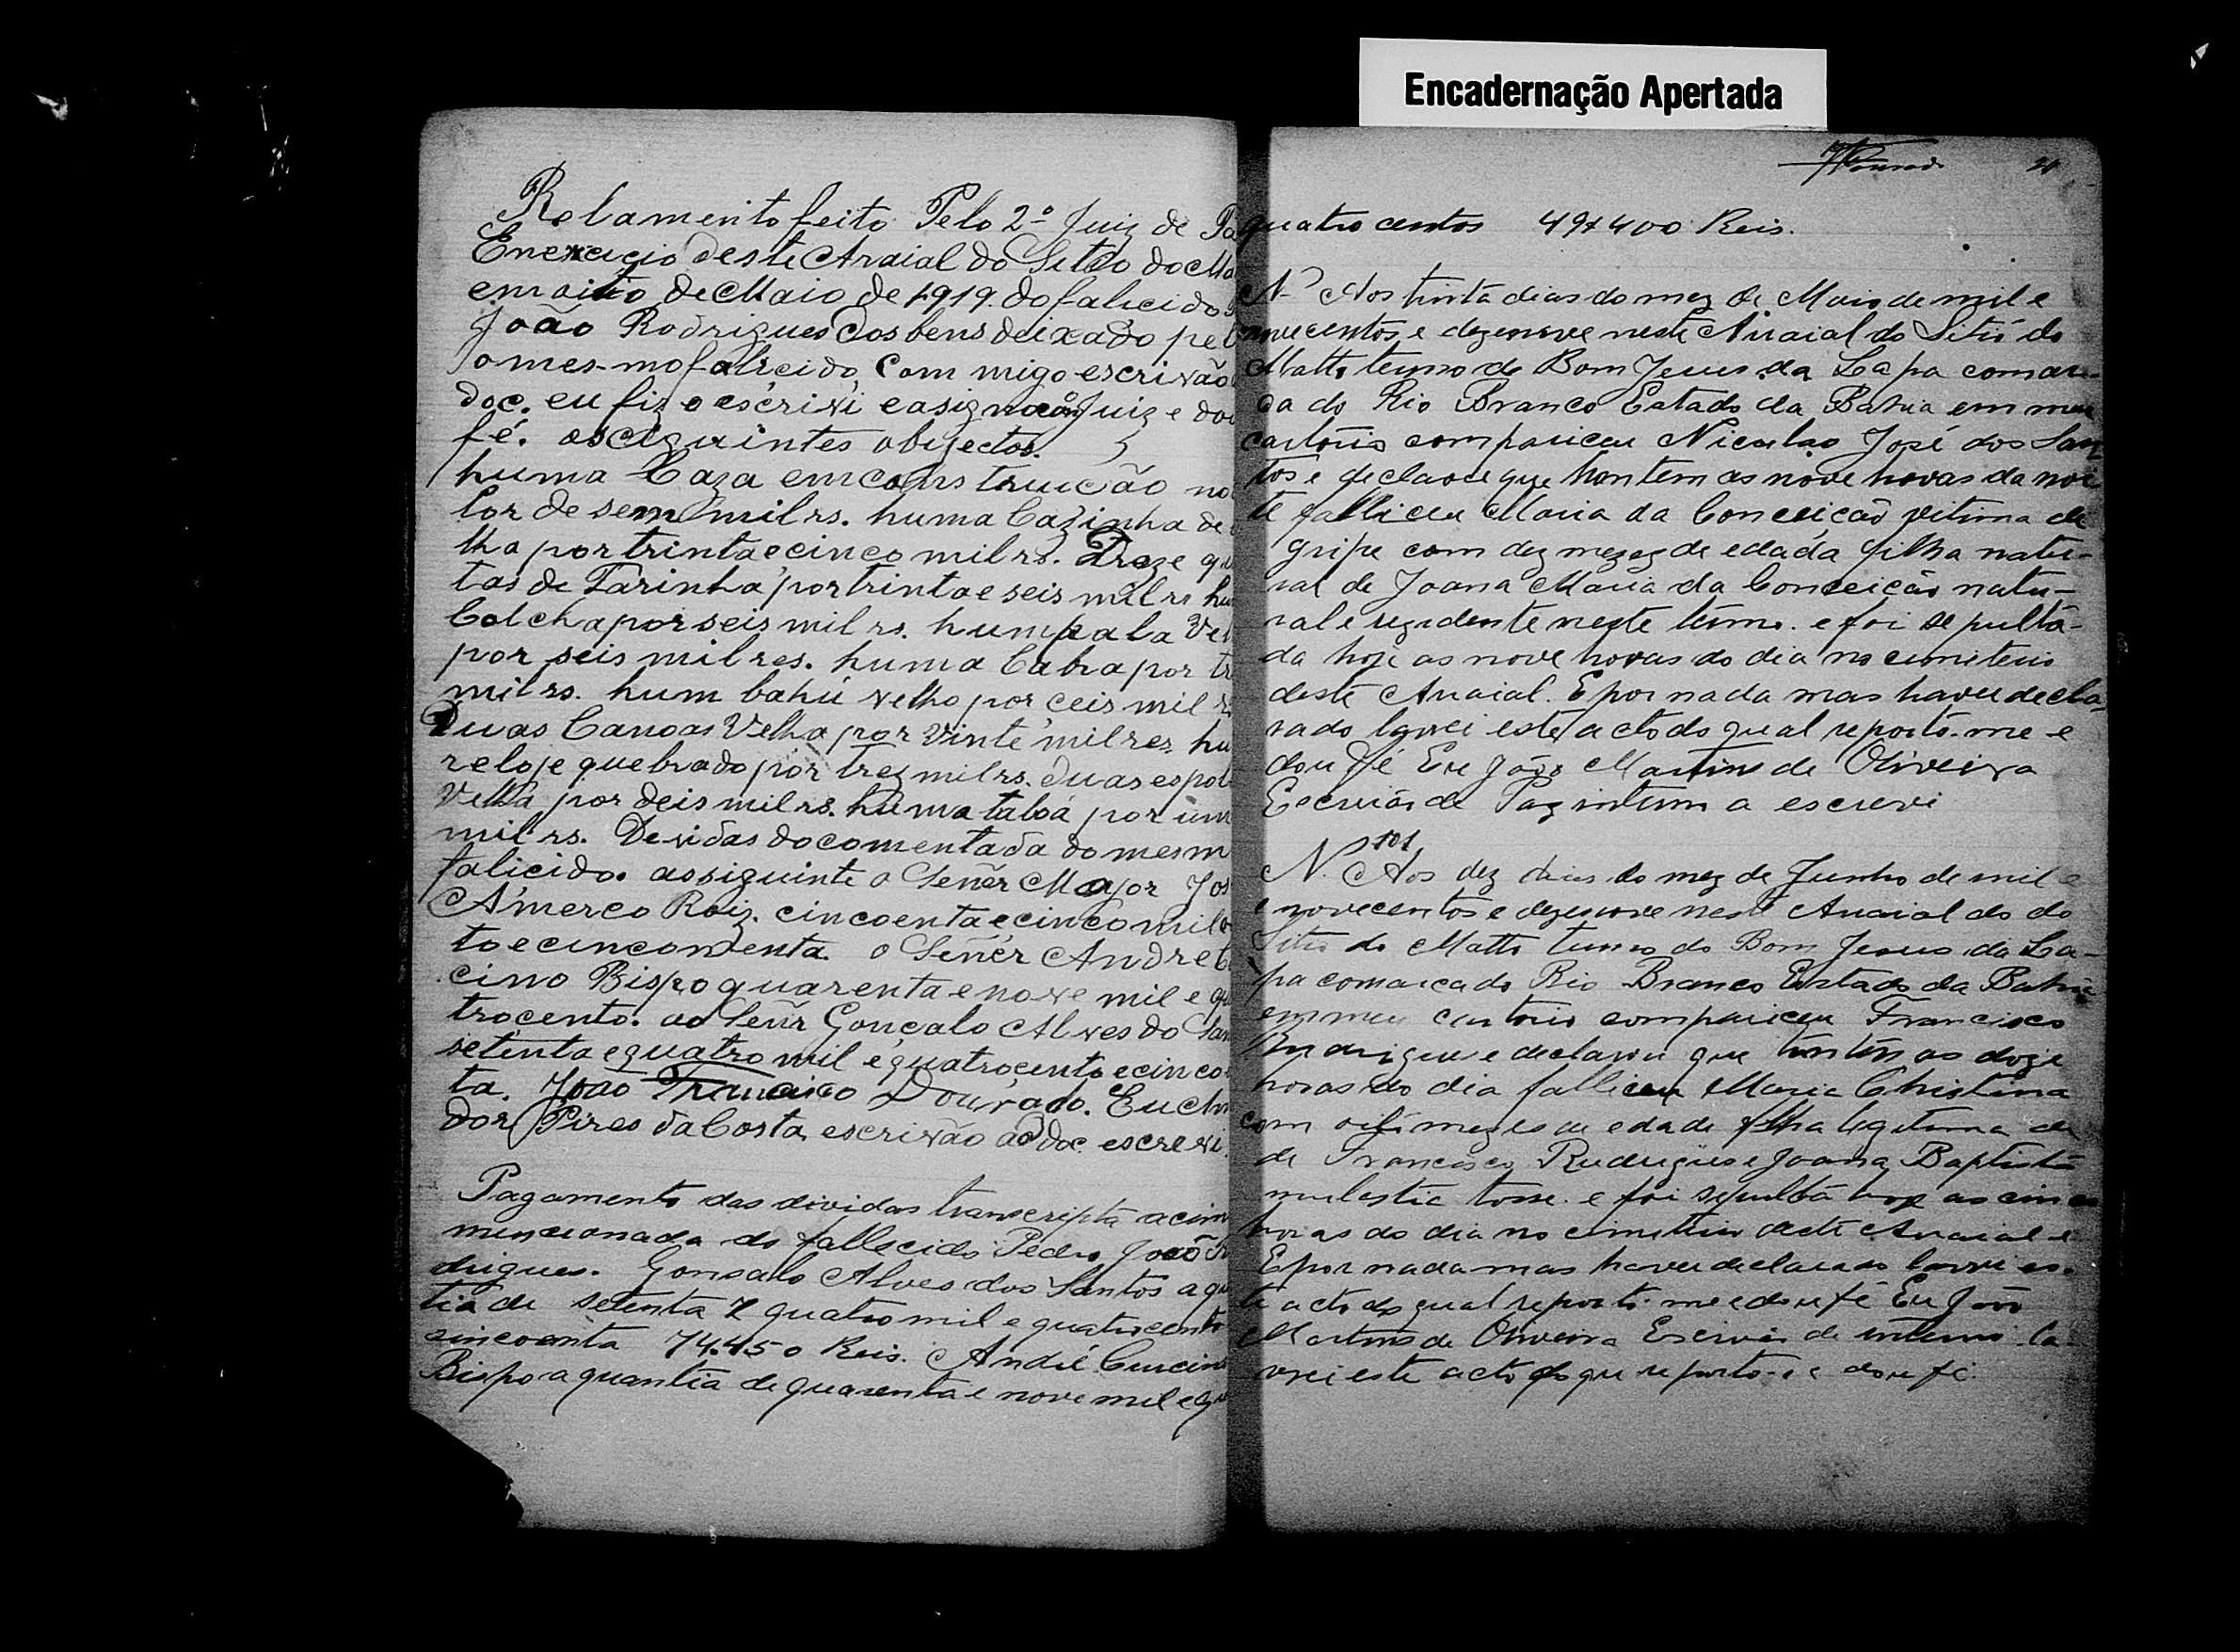 Encadernação Apertada
Rolamento feito Pelo 2º Juiz de Pa
Enexcicio deste Araial do Sitio do Ma
em oito de Maio de 1919. do falicido
João Rodrigues dos bens deixado pel
o mes-mo falicido, Com migo escrivão
doc. eu fiz o escrivi e asignaçãoo Juiz e dou
fé. os ciguintes obijectos.
huma Caza em construcão no
lor de sem mil rs. huma Cazinha de
lha por trinta e cinco mil rs. Doze qu
tas de Farinha por trinta e seis mil rs hu
Colcha por seis mil rs. hum pala Vel
por seis mil res. huma Cabra por tr
mil rs. hum bahú velho por ceis mil rs
Duas Canoas Velha por Vinte mil res, hu
reloje quebrado por trez mil rs. duas espol
Velha por deis mil rs. huma taboa por um
mil rs. Devidas docomentada do mesm
falicido. as siguinte o Señer Major Jos
Amerco Roiz. cincoenta e cinco mil
to e cinconenta. o Señer Andre C
cino Bispo quarenta e nove mil e qu
trocento. ao Señr Gonçalo Alves do San
setenta e quatro mil e quatrocento e cinco
ta. João Francisco Dourado. Eu
dor Pires da Costa, escrivão ad doc. escrevi.
Pagamento das dividas transcripta acim
mencionada do fallecido Pedro João R
drigues. Gonsalo Alves dos Santos a qu
tia de setenta e quatro mil e quatrocento
cincoenta 74.450 Reis. André Curcino
Bispo a quantia de quarenta e nove mil e qu
20
quatro centos 49#400 Reis.
N- Aos trinta dias do mez de Maio de mil e
novecentos e dezenove neste Araial do Sitio do
Matto termo do Bom Jesus da Lapa comar-
ca do Rio Branco Estado da Bahia em meu
cartorio compariceu Niculao José dos San
tos e declarou que hontem as nove horas da noi
te falliceu Maria da Conceição vitima de
gripe com dez mezez de edada filha natu-
ral de Joana Maria da Conceição natu-
ral e rezidente neste termo. e foi sepulta-
da hoje as nove horas do dia no cimiterio
deste Araial. E por nada mas haver decla-
rado lavrei este acto do qual reporto-me e
dou fé Eu João Martins de Oliveira
Escrivão de Paz interino a escrevi
N. 101 Aos dez dias do mez de Junho de mil e
e novecentos e dezenove neste Araial do do
Sitio do Matto termo do Bom Jesus da La-
pa comarca do Rio Branco Estado da Bahia
em meu cartorio compariceu Francisco
Rudrigues e declarou que ontem as doze
horas do dia falliceu Maria Christina
com oito mezes de edade filha legitima de
de Francisco Rudrigues e Joana Baptista
mulestia tosse. e foi sepulta hoje as cinco
horas do dia no cimiterio deste Araial e
E por nada mas haver declarado lavrei es-
te acto do qual reporto-me e dou fé Eu João
Martins de Oliveira Escrivão de interino la-
vrei este acto do que reporto-e e dou fé.